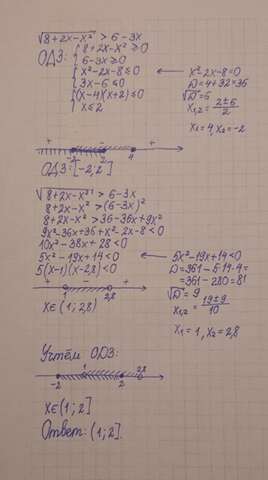 √8+2x-x² > 6-3x
ОДЗ: { 8+2x-x² ≥ 0
6-3x ≥ 0
{ x²-2x-8 ≤ 0
3x-6 ≤ 0
{ (x-4)(x+2) ≤ 0
x ≤ 2
x²-2x-8=0
D=4+32=36
√D=6
x₁,₂ = (2±6)/2
x₁=4, x₂=-2
+ - +
-2 2 4
ОДЗ: [-2;2]
√8+2x-x² > 6-3x
8+2x-x² > (6-3x)²
8+2x-x² > 36-36x+9x²
9x²-36x+36+x²-2x-8<0
10x²-38x+28<0
5x²-19x+14<0
5(x-1)(x-2,8)<0
5x²-19x+14<0
D=361-5·14·4=
=361-280=81
√D=9
x₁,₂ = (19±9)/10
x₁=1, x₂=2,8
+ - +
1 2,8
x∈(1;2,8)
Учтём ОДЗ:
-2 1 2 2,8
x∈(1;2]
Ответ: (1;2].